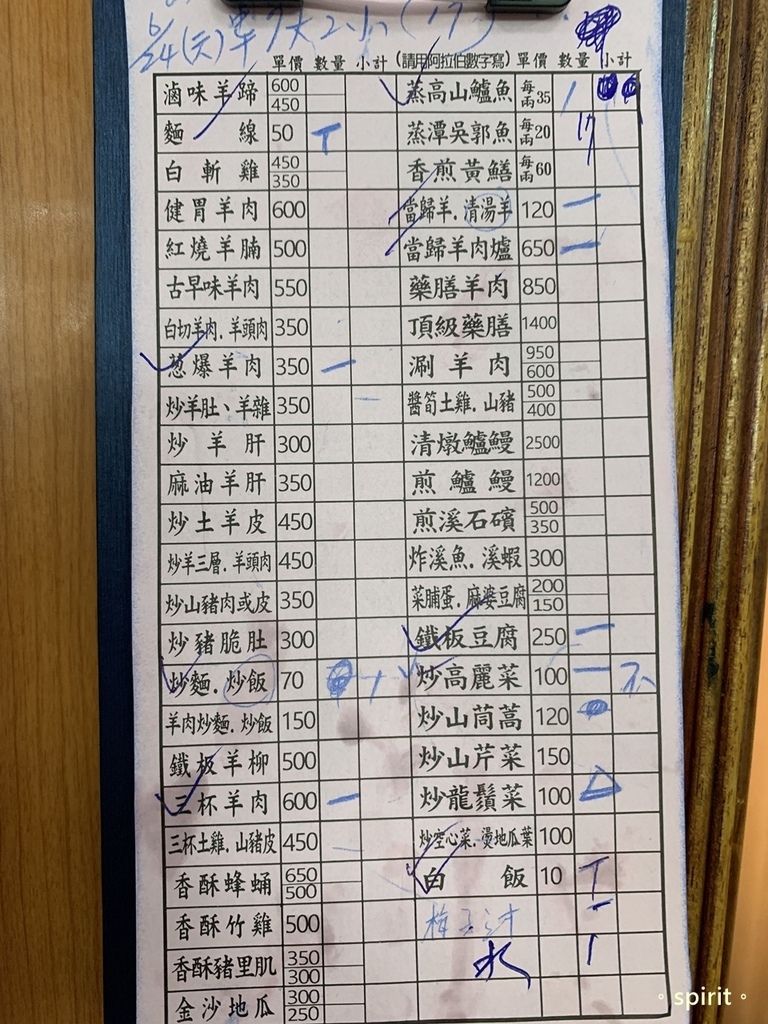 6/24(六)
單價 數量 小計 (請用阿拉伯數字寫) 單價 數量 小計
滷味羊蹄 600 450 蒸高山鱸魚 每兩35
麵線 50 蒸潭吳郭魚 每兩20
白斬雞 450 350 香煎黃鱔 每兩60
健胃羊肉 600 當歸羊.清湯羊 120 一
紅燒羊腩 500 當歸羊肉爐 650 一
古早味羊肉 550 藥膳羊肉 850
白切羊肉.羊頭肉 350 頂級藥膳 1400
蔥爆羊肉 350 一 涮羊肉 950 600
炒羊肚、羊雜 350 醬筍土雞.山豬 500 400
炒羊肝 300 清燉鱸鰻 2500
麻油羊肝 350 煎鱸鰻 1200
炒土羊皮 450 煎溪石礦 500 350
炒羊三層.羊頭肉 450 炸溪魚.溪蝦 300
炒山豬肉或皮 350 菜脯蛋.麻婆豆腐 200 150
炒豬脆肚 300 鐵板豆腐 250 一
炒麵.炒飯 70 炒高麗菜 100 一
羊肉炒麵.炒飯 150 炒山茼蒿 120
鐵板羊柳 500 炒山芹菜 150
三杯羊肉 600 一 炒龍鬚菜 100
三杯土雞.山豬皮 450 炒空心菜.燙地瓜葉 100
香酥蜂蛹 650 500 白飯 10
香酥竹雞 500
香酥豬里肌 350 300 水
金沙地瓜 300 250
。spirit。